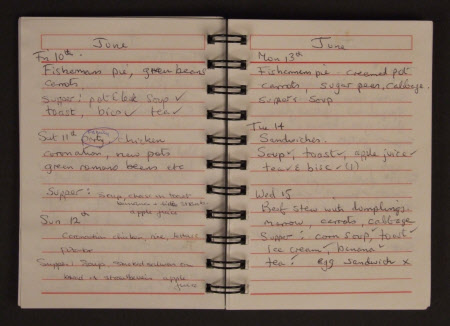 June
Fri 10th
Fishermans pie, green beans
carrots.
Supper: pot & leek soup ✓
toast, bisc ✓ tea ✓
Sat 11th party chicken
coronation, new pots
green romano beans etc
Supper: Soup, on toast
apple juice
Sun 12th
Coronation chicken, rice,
Supper: Soup, on
bread & strawberries apple
juice
June
Mon 13th
Fishermens pie creamed pot
carrots, sugar peas, cabbage.
Supper: Soup
Tue 14
Sandwiches.
Soup, toast, apple juice ✓
tea & bisc ✓ (1)
Wed 15
Beef stew with dumplings.
Marrow, carrots, cabbage
Supper: corn soup, toast
Ice cream, banana
tea: egg sandwich x